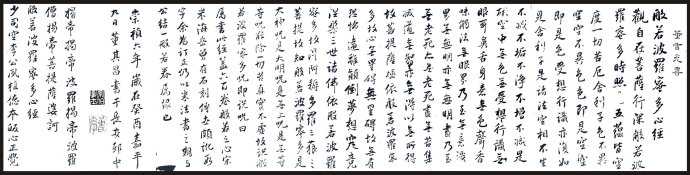 般若波羅蜜多心經
觀自在菩薩行深般若波
羅蜜多時照見五蘊皆空
度一切苦厄舍利子色不異
空空不異色色即是空空
即是色受想行識亦復如
是舍利子是諸法空相不生
不滅不垢不淨不增不減是
故空中無色無受想行識無
眼耳鼻舌身意無色聲香
味觸法無眼界乃至無意識
界無無明亦無無明盡乃至
無老死亦無老死盡無苦集
滅道無智亦無得以無所得
故菩提薩埵依般若波羅蜜
多故心無罣礙無罣礙故無有
恐怖遠離顛倒夢想究竟
涅槃三世諸佛依般若波羅
蜜多故得阿耨多羅三藐三
菩提故知般若波羅蜜多是
大神咒是大明咒是無上咒是無等
等咒能除一切苦真實不虛故說般
若波羅蜜多咒即說咒曰
屬書此經蓋六百卷般若之心宗
米海岳曾有石刻傳
字余為訂正仍以米法書之
公結一般若眷屬緣也
崇禎六年歲在癸酉嘉平
九日董其昌書于長安邸中
揭帝揭帝波羅揭帝波羅
僧揭帝菩提薩婆訶
般若波羅蜜多心經
少司空李公夙植德本皈心正覺